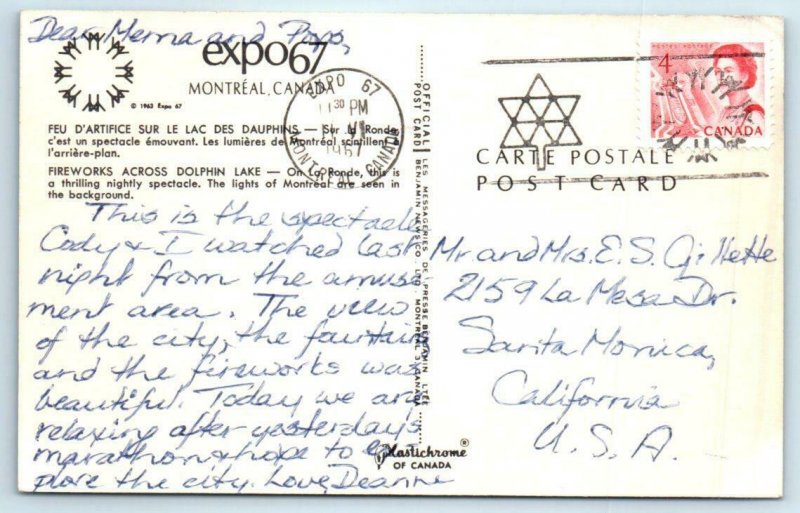 Dear Merna and Pops,
expo67
MONTRÉAL, CANADA
© 1963 Expo 67
FEU D'ARTIFICE SUR LE LAC DES DAUPHINS — Sur la Ronde,
c'est un spectacle émouvant. Les lumières de Montréal scintillent à
l'arrière-plan.
FIREWORKS ACROSS DOLPHIN LAKE — On La Ronde, this is
a thrilling nightly spectacle. The lights of Montreal are seen in
the background.
This is the spectacle
Cody & I watched last
night from the amuse-
ment area. The view
of the city, the fountain
and the fireworks was
beautiful. Today we are
relaxing after yesterday's
marathon & hope to ex-
plore the city. Love, Deanne
EXPO 67
11 30 PM
VI
1967
MONTREAL CANADA
OFFICIAL POST CARD
LES MESSAGERIES DE PRESSE BENJAMIN LTÉE
BENJAMIN NEWS CO. LTD. MONTREAL 3, CANADA
Plastichrome®
OF CANADA
POSTES POSTAGE
4
CANADA
CARTE POSTALE
POST CARD
Mr. and Mrs. E. S. Gillette
2159 La Mesa Dr.
Santa Monica,
California
U.S.A.